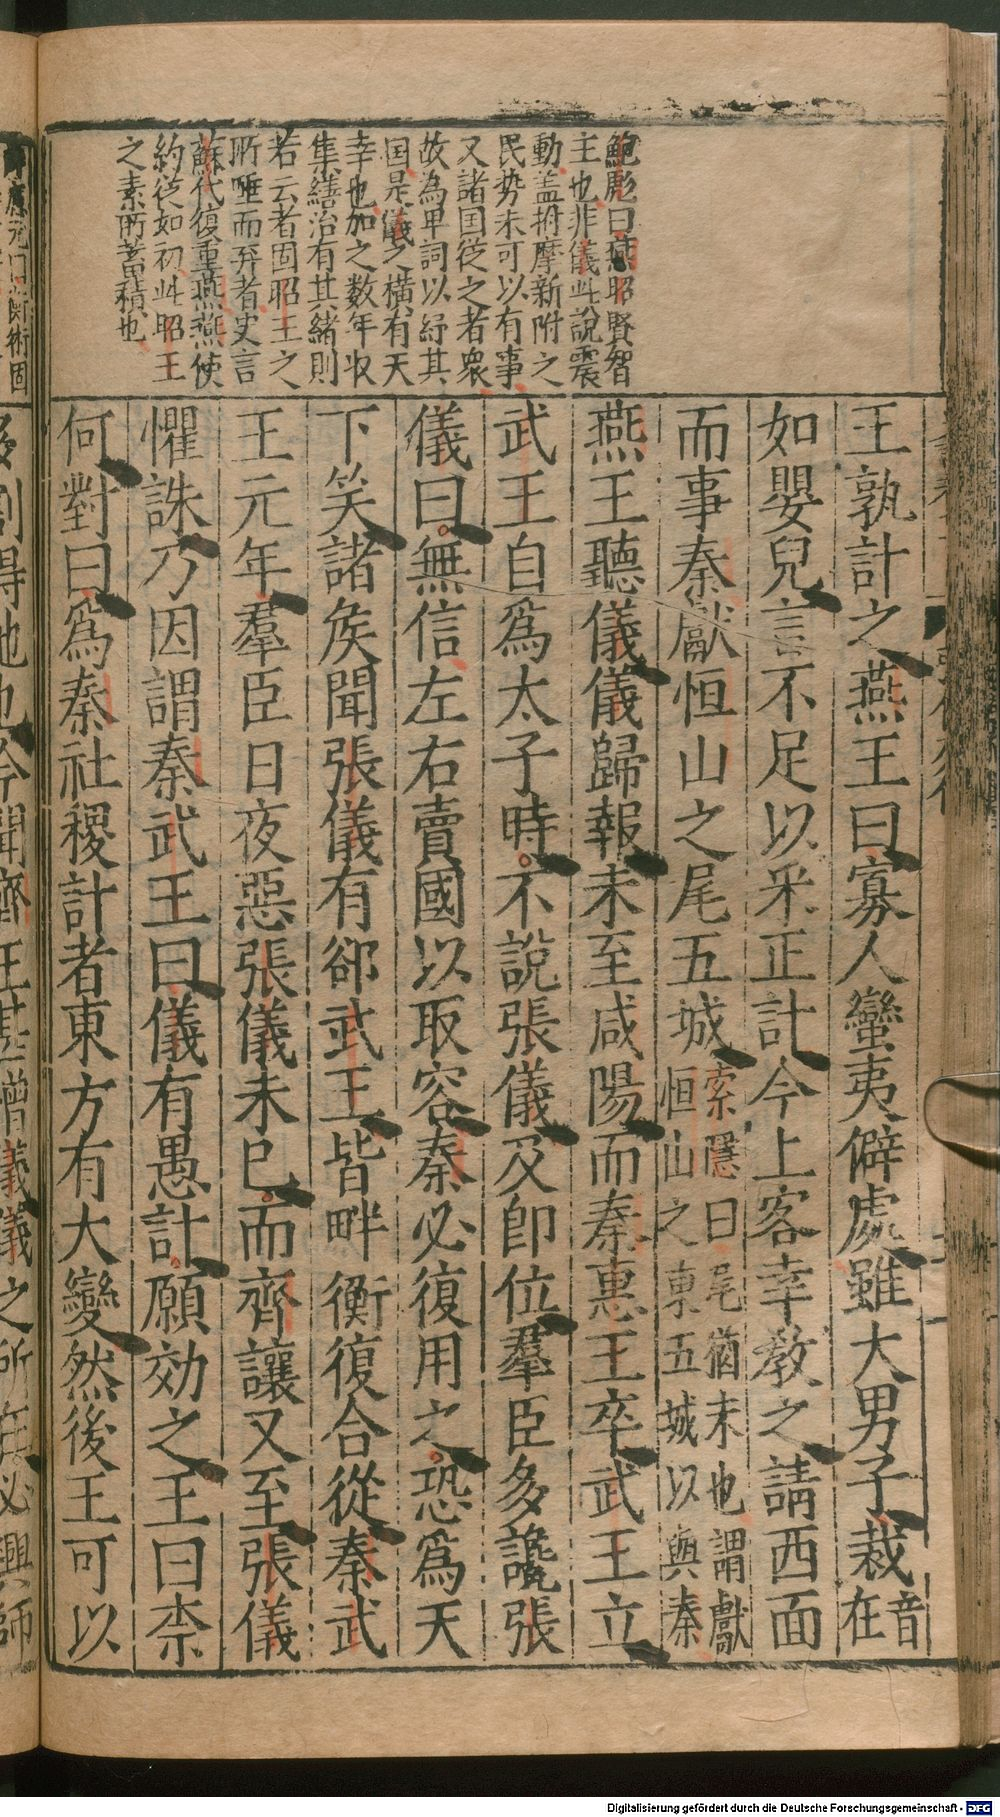 鮑彪曰燕昭賢智
主也非儀此說震
動蓋揣摩新附之
民势未可以有事
又諸国從之者衆
故為卑詞以紓其
国是儀之橫有天
幸也加之数年收
集繕治有其緒則
若云者固昭王之
所唾而弃者史言
蘇代復重燕燕使
約從如初此昭王
之素所蓄積也
王孰計之燕王曰寡人蠻夷僻處雖大男子裁音在
如嬰兒言不足以采正計今上客幸教之請西面
而事秦獻恒山之尾五城索隱曰尾猶末也謂獻恒山之東五城以與秦
燕王聽儀儀歸報未至咸陽而秦惠王卒武王立
武王自爲太子時不說張儀及即位羣臣多讒張
儀曰無信左右賣國以取容秦必復用之恐爲天
下笑諸矦聞張儀有郤武王皆畔衡復合從秦武
王元年羣臣日夜惡張儀未已而齊讓又至張儀
懼誅乃因謂秦武王曰儀有愚計願効之王曰柰
何對曰爲秦社稷計者東方有大變然後王可以
多割得地也今聞齊王甚憎儀儀之所在必興師
Digitalisierung gefördert durch die Deutsche Forschungsgemeinschaft - DFG